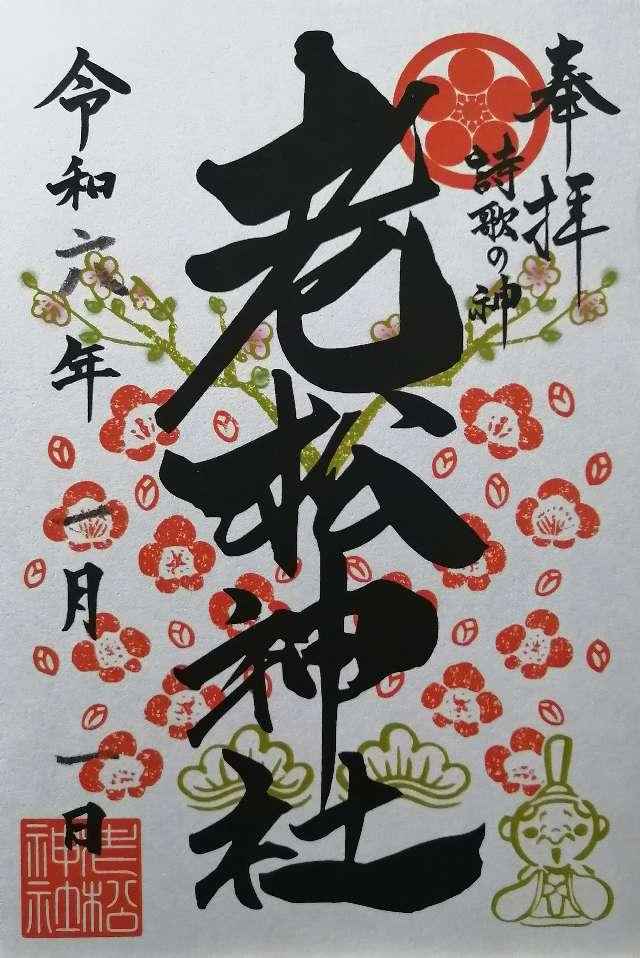 奉拝
詩歌の神
老松神社
令和六年一月一日
老松神社